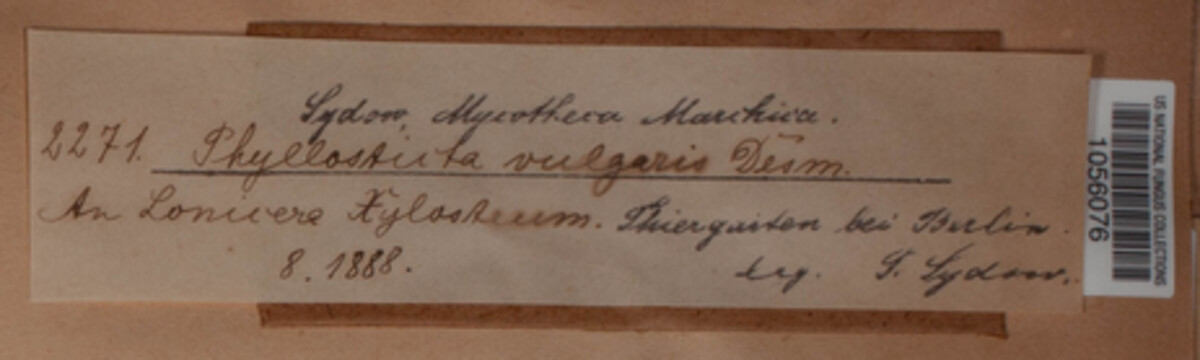 Sydow, Mycotheca Marchica.
2271. Phyllosticta vulgaris Desm.
An Lonicera Xylosteum. Thiergarten bei Berlin.
8. 1888. leg. P. Sydow.
US NATIONAL FUNGUS COLLECTIONS
1056076